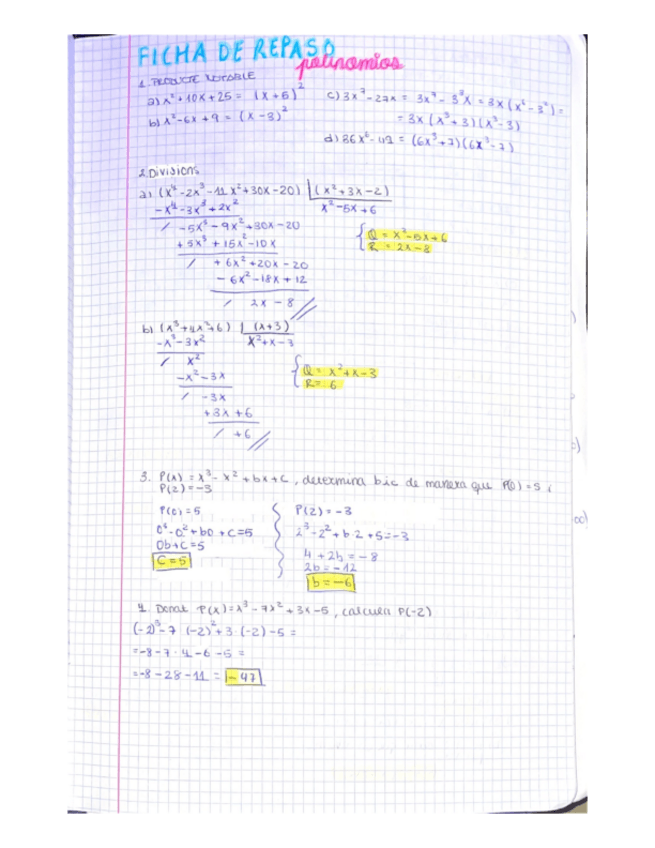 FICHA DE REPASO
polinomios
1. PRODUCTE NOTABLE
a) x²+10x+25 = (x+5)²
b) x²-6x+9 = (x-3)²
c) 3x⁷-27x = 3x⁷-3³x = 3x(x⁶-3²) =
= 3x(x³+3)(x³-3)
d) 36x⁶-49 = (6x³+7)(6x³-7)
2. Divisions
a) (x⁴-2x³-11x²+30x-20) | (x²+3x-2)
-x⁴-3x³+2x² x²-5x+6
/ -5x³-9x²+30x-20
+5x³+15x²-10x
/ +6x²+20x-20
-6x²-18x+12
/ 2x-8 //
Q = x²-5x+6
R = 2x-8
b) (x³+4x²+6) | (x+3)
-x³-3x² x²+x-3
/ x²
-x²-3x
/ -3x
+3x+6
/ +6 //
Q = x²+x-3
R = 6
3. P(x) = x³-x²+bx+c, determina b i c de manera que P(0)=5 i
P(2)=-3
P(0)=5
0³-0²+b0+c=5
0b+c=5
c=5
P(2)=-3
2³-2²+b·2+5=-3
4+2b=-8
2b=-12
b=-6
4. Donat P(x)=x³-7x²+3x-5, calcula P(-2)
(-2)³-7·(-2)²+3·(-2)-5=
=-8-7·4-6-5=
=-8-28-11=-47